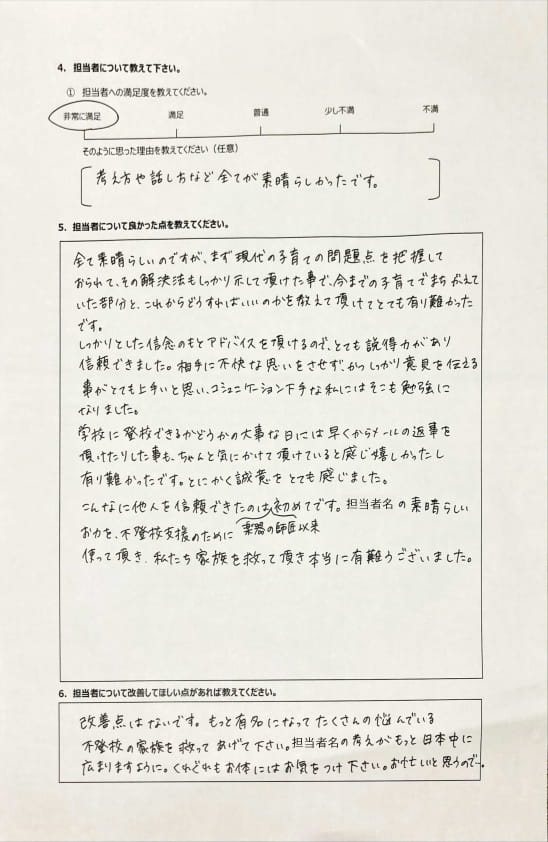 4. 担当者について教えて下さい。
① 担当者への満足度を教えてください。
非常に満足 満足 普通 少し不満 不満
そのように思った理由を教えてください（任意）
考え方や話し方など全てが素晴らしかったです。
5. 担当者について良かった点を教えてください。
全て素晴らしいのですが、まず現代の子育ての問題点を把握して
おられて、その解決法もしっかり示して頂けた事で、今までの子育てでまちがえて
いた部分と、これからどうすればいいのかを教えて頂けてとても有り難かった
です。
しっかりとした信念のもとアドバイスを頂けるので、とても説得力があり
信頼できました。相手に不快な思いをさせず、かつしっかり意見を伝える
事がとても上手いと思い、コミュニケーション下手な私にはそこも勉強に
なりました。
学校に登校できるかどうかの大事な日には早くからメールの返事を
頂けたりした事も、ちゃんと気にかけて頂けていると感じ嬉しかったし
有り難かったです。とにかく誠意をとても感じました。
こんなに他人を信頼できたのは初めてです。担当者名の素晴らしい
お力を、不登校支援のために 楽器の師匠以来
使って頂き、私たち家族を救って頂き本当に有難うございました。
6. 担当者について改善してほしい点があれば教えてください。
改善点はないです。もっと有名になってたくさんの悩んでいる
不登校の家族を救ってあげて下さい。担当者名の考えがもっと日本中に
広まりますように。くれぐれもお体にはお気をつけ下さい。お忙しいと思うので…。